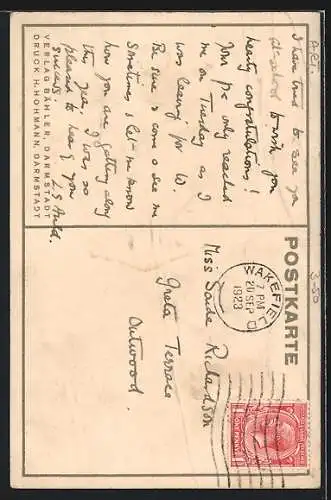 A.R.I.
3-50
I have tried to see you
at school to wish you
hearty congratulations!
Your p.c. only reached
me on Tuesday as I
was leaving for W.
Be sure & come & see me
sometimes & let me know
how you are getting along
this year. I was so
pleased to hear of your
success
VERLAG BÄHLER, DARMSTADT
DRUCK H. HOHMANN, DARMSTADT
POSTKARTE
WAKEFIEL
7 PM
20 SEP
1923
ONE PENNY
Miss Saide Richardson
Greta Terrace
Outwood.